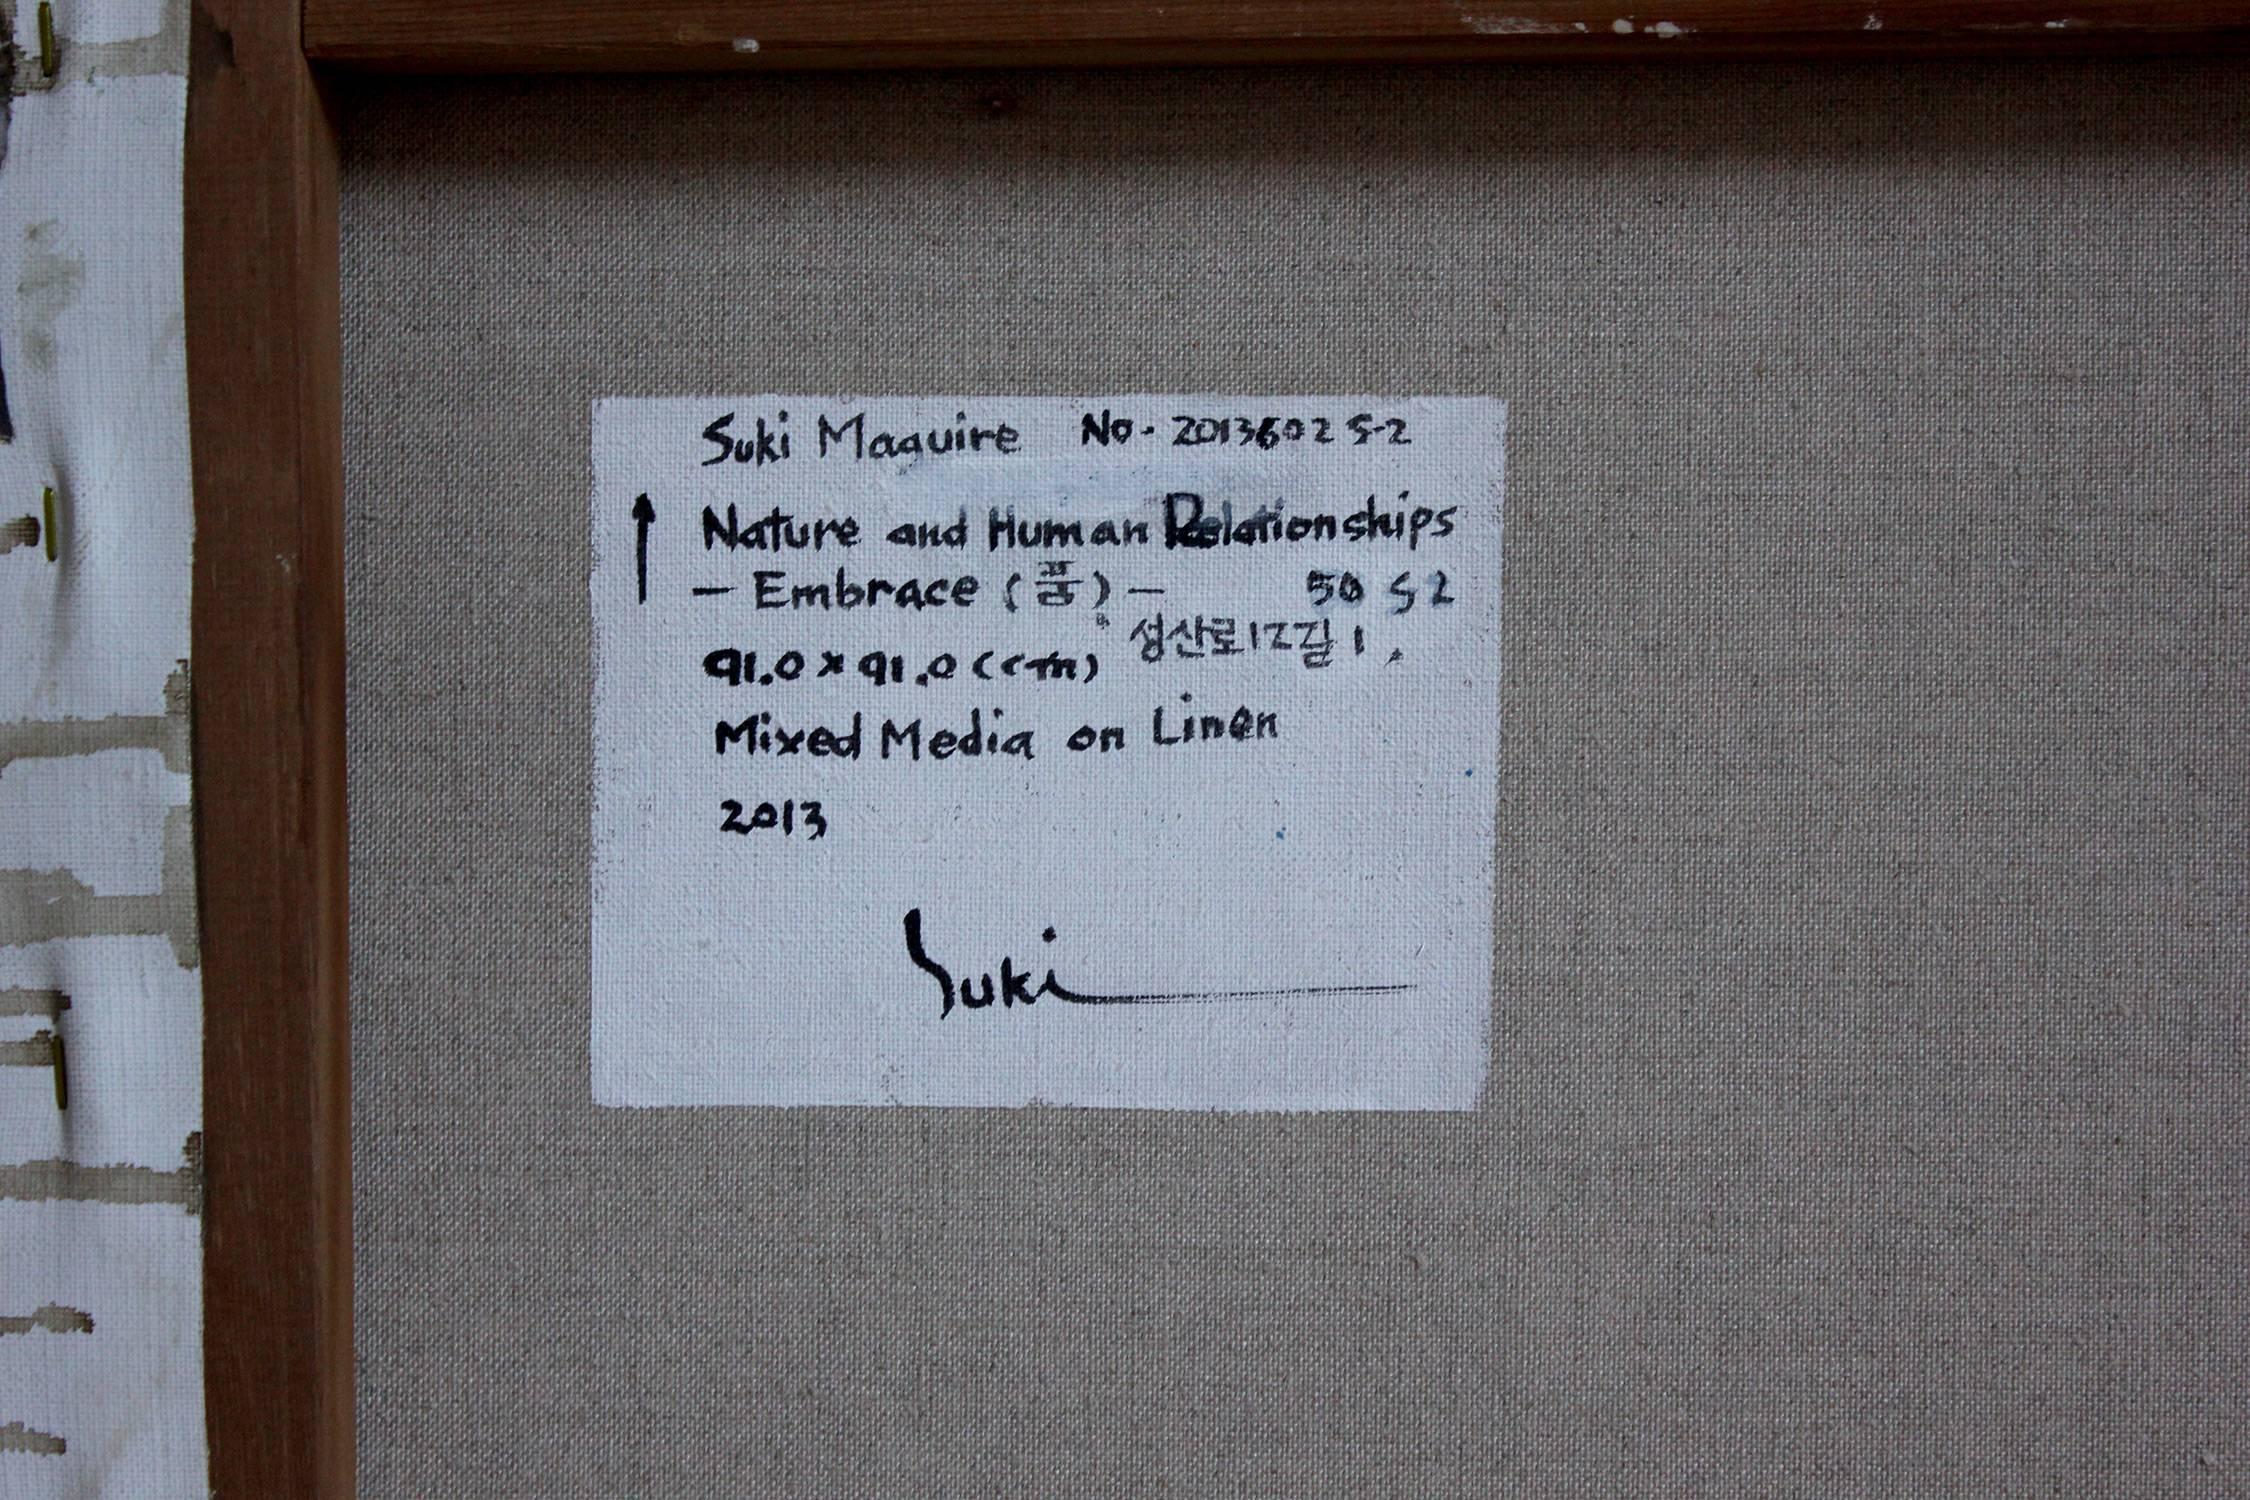 Suki Maguire No. 2013602 S-2
Nature and Human Relationships
- Embrace (품) - 50 S 2
성산로12길 1,
91.0 x 91.0 (cm)
Mixed Media on Linen
2013
Suki